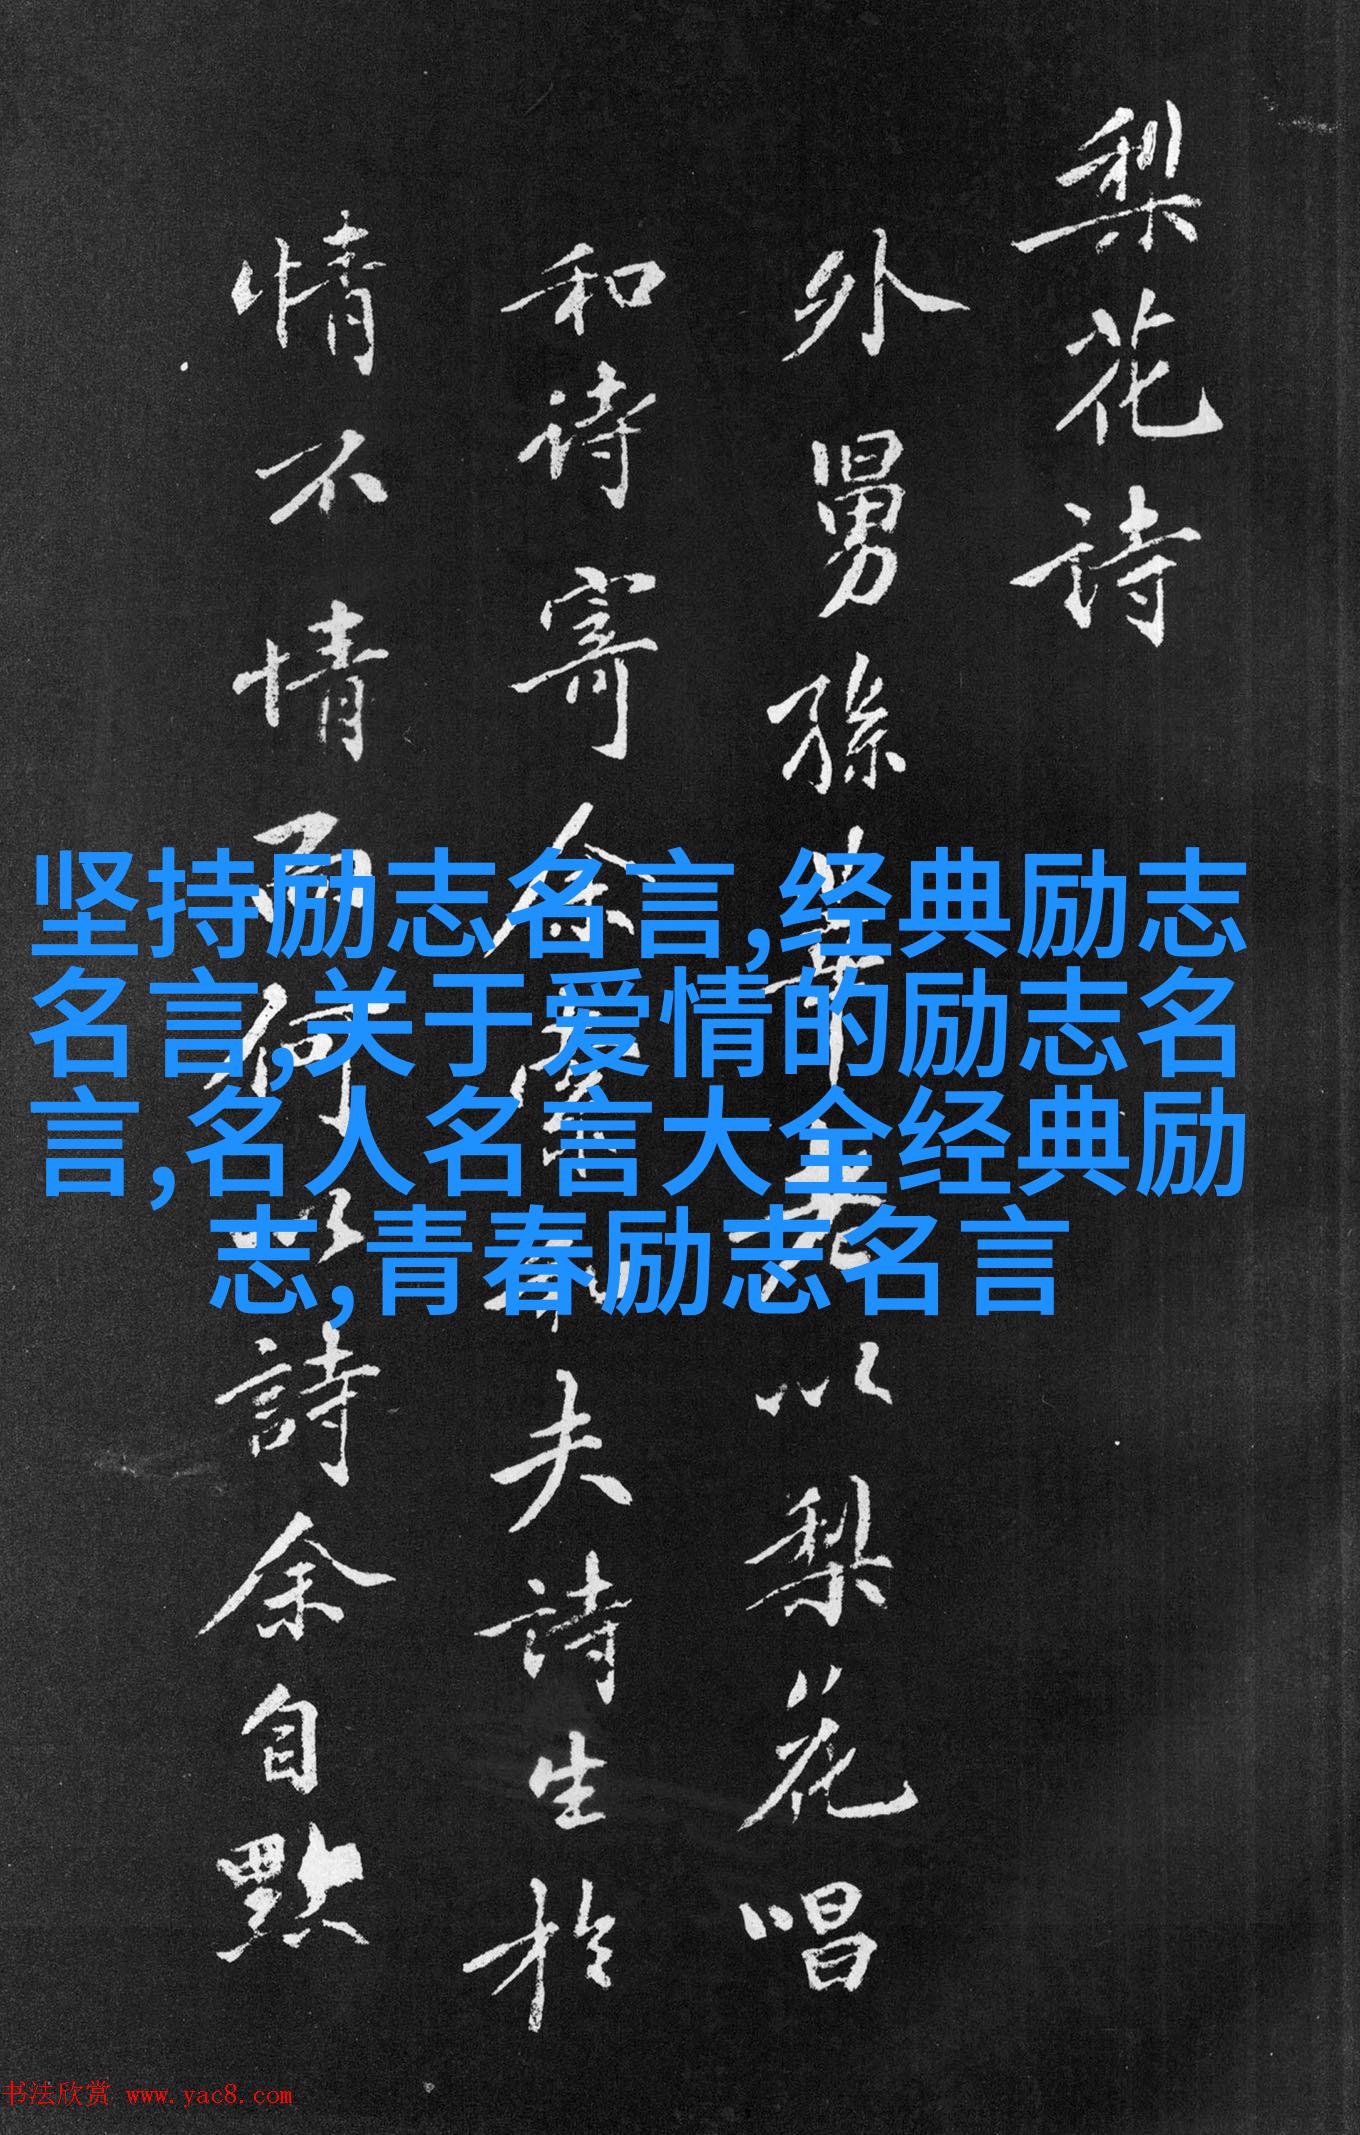 梨花詩
外舅孫莘老以梨花唱
和诗寄余余夫詩生於
情不情而何以詩余自點
坚持励志名言,经典励志
名言,关于爱情的励志名
言,名人名言大全经典励
志,青春励志名言
书法欣赏 www.yac8.com